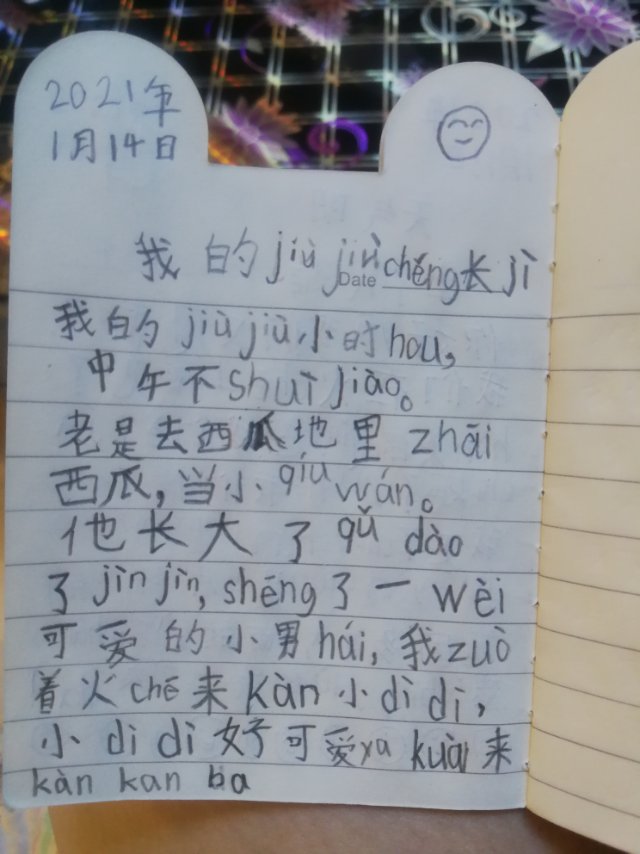 2021年
1月14日
我的jiù jiù chéng长jì
Date
我的jiù jiù小时hou,
中午不shuì jiào。
老是去西瓜地里zhāi
西瓜,当小qiú wán。
他长大了qǔ dào
了jìn jìn, shēng了一wèi
可爱的小男hái,我zuò
着火chē来kàn小dì dì,
小dì dì好可爱ya kuài来
kàn kan ba